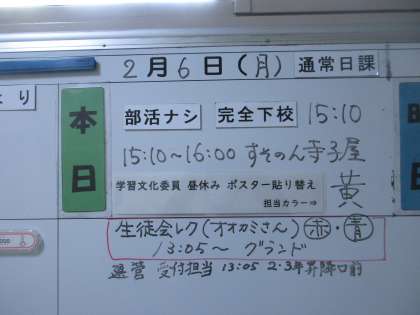 2月6日(月) 通常日課
より
本日
部活ナシ 完全下校 15:10
15:10~16:00 すそのん寺子屋
学習文化委員 昼休み ポスター貼り替え
担当カラー⇒ 黄
生徒会レク(オオカミさん) 赤・青
13:05~ グランド
運営 受付担当 13:05 2・3年昇降口前